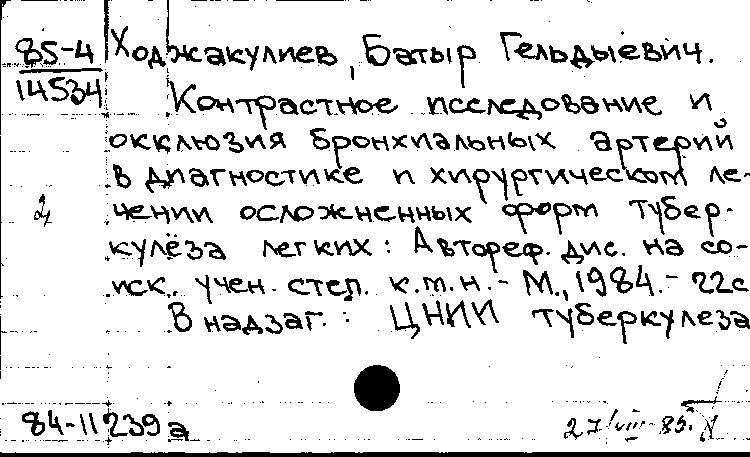 85-4 Ходжакулиев, Батыр Гельдыевич.
14534 Контрастное исследование и
окклюзия бронхиальных артерий
в диагностике и хирургическом ле-
чении осложненных форм тубер-
кулёза легких: Автореф. дис. на со-
иск. учен. степ. к.м.н. - М., 1984. - 22с
В надзаг.: ЦНИИ туберкулеза
2
84-11239а
27/VIII-85г